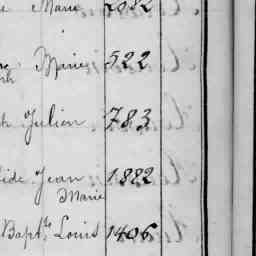 Marie 2082
Marie 522
Julien 783
Jean 1882
Marie
Bapt.te Louis 1406